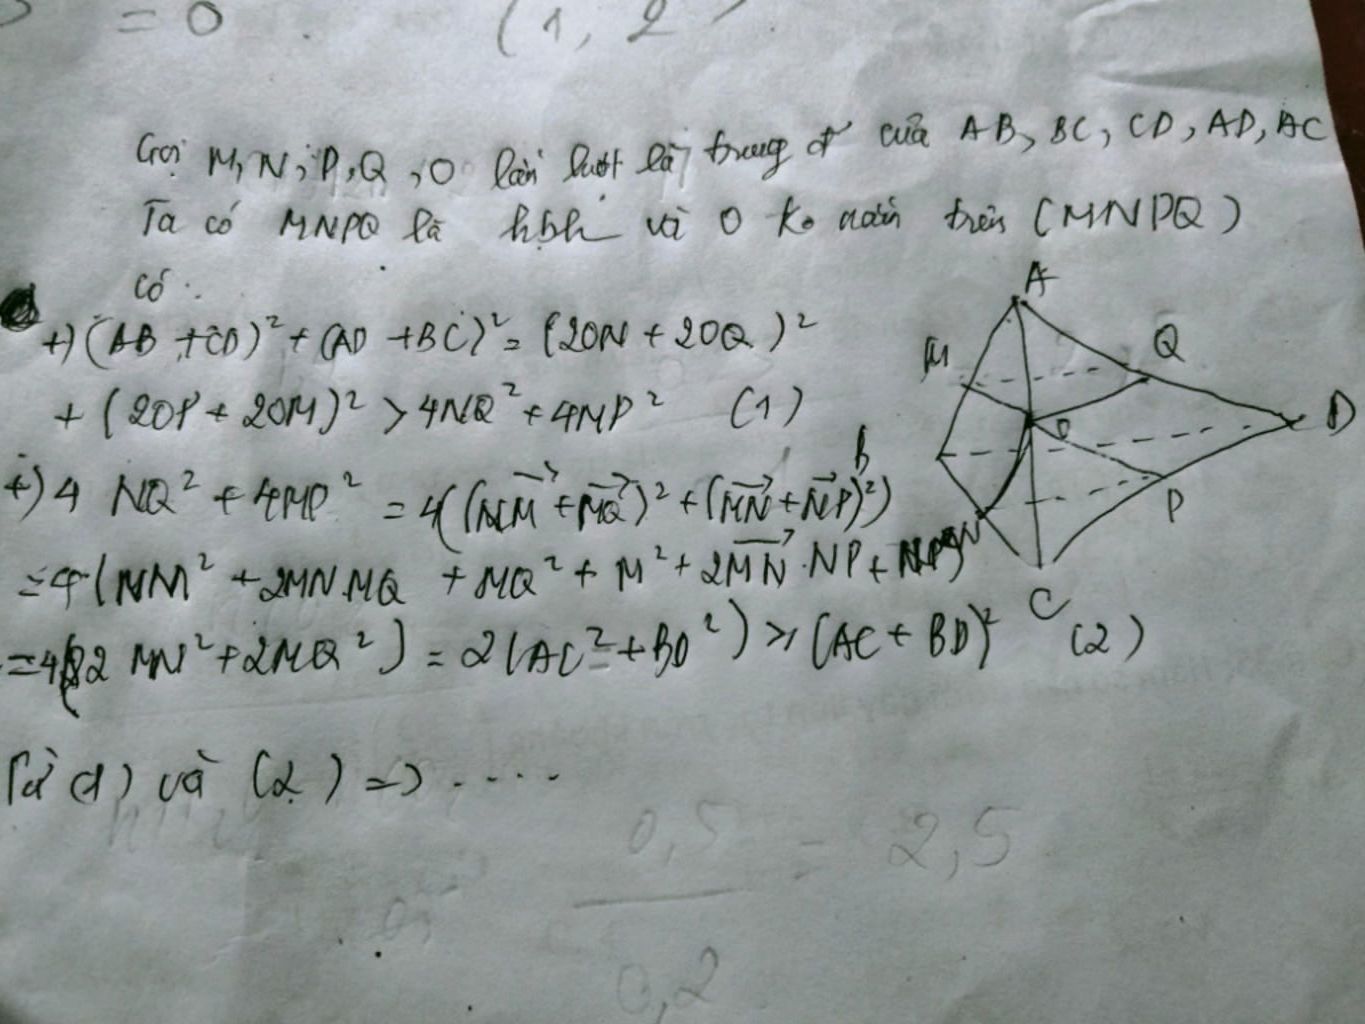 = 0 (1, 2
Gọi M, N, P, Q, O lần lượt là trung đ' của AB, BC, CD, AD, AC
Ta có MNPQ là hbh và O ko nằm trên (MNPQ)
có
+) (AB + CD)² + (AD + BC)² = (2ON + 2OQ)²
+ (2OP + 2OM)² > 4NQ² + 4MP² (1)
+) 4 NQ² + 4MP² = 4((NM + MQ)² + (MN + NP)²)
= 4(NM² + 2MN.MQ + MQ² + M² + 2MN.NP +
= 4(2 MN² + 2MQ²) = 2(AC² + BD²) ≥ (AC + BD)² (2)
Từ (1) và (2) => ....
A
M
Q
D
O
B
P
N
C
0,5 = 2,5
0,2